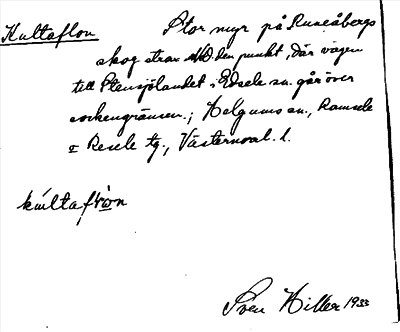 Kultaflon Stor myr på Runeåbergs
skog strax N.O. den punkt, där vägen
till Stensjölandet i Edsele sn. går över
sockengränsen.; Helgums sn., Ramsele
o Resele tg., Västernorrl. l.
kúltaflòn
Sven Hiller 1933